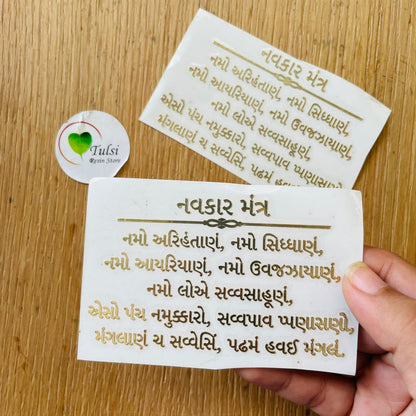 નવકાર મંત્ર
નમો અરિહંતાણં, નમો સિધ્ધાણં,
નમો આયરિયાણં, નમો ઉવજઝાયાણં,
નમો લોએ સવ્વસાહૂણં,
એસો પંચ નમુક્કારો, સવ્વપાવ પ્પણાસણો
મંગલાણં ચ સવ્વેસિં, પઢમં હવઈ મંગલં.
Tulsi
Resin Store
નવકાર મંત્ર
નમો અરિહંતાણં, નમો સિધ્ધાણં,
નમો આયરિયાણં, નમો ઉવજઝાયાણં,
નમો લોએ સવ્વસાહૂણં,
એસો પંચ નમુક્કારો, સવ્વપાવ પ્પણાસણો
મંગલાણં ચ સવ્વેસિં, પઢમં હવઈ